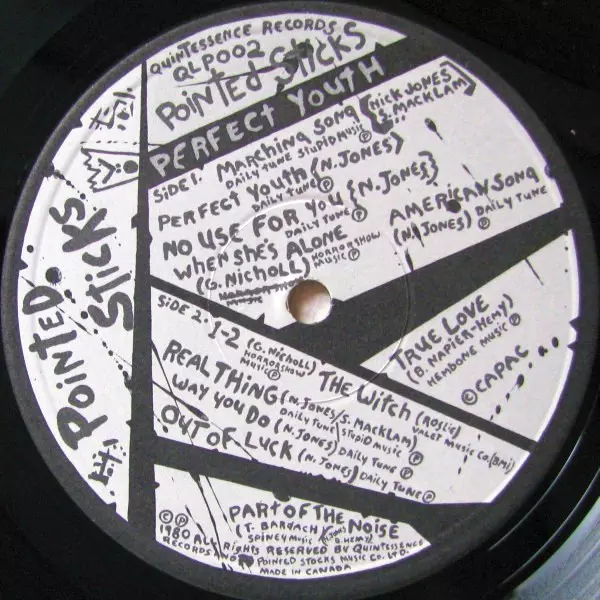 QUINTESSENCE RECORDS
QLP002
POINTED STICKS
PERFECT YOUTH
SIDE 1. MARCHING SONG {NICK JONES
S. MACKLAM}
DAILY TUNE STUPID MUSIC Ⓟ
PERFECT YOUTH (N. JONES)
DAILY TUNE Ⓟ
NO USE FOR YOU {N. JONES}
DAILY TUNE Ⓟ
WHEN SHE'S ALONE
(G. NICHOLL) HORRORSHOW
MUSIC Ⓟ
AMERICAN SONG
(N. JONES) DAILY TUNE Ⓟ
TRUE LOVE
(B. NAPIER-HEMY)
HEMBONE MUSIC Ⓟ
© CAPAC
SIDE 2. 1-2 (G. NICHOLL)
HORRORSHOW
MUSIC Ⓟ
THE WITCH (ROSLIE)
VALET MUSIC CO. (BMI)
REAL THING (N. JONES/S. MACKLAM)
DAILY TUNE/STUPID MUSIC Ⓟ
WAY YOU DO (N. JONES) DAILY TUNE Ⓟ
OUT OF LUCK (N. JONES) DAILY TUNE Ⓟ
PART OF THE NOISE
(T. BARDACH) (N. JONES
SPINEY MUSIC B. HEMY)
© Ⓟ
1980 ALL RIGHTS RESERVED BY QUINTESSENCE
RECORDS AND POINTED STOCKS MUSIC CO. LTD.
MADE IN CANADA
POINTED
STICKS